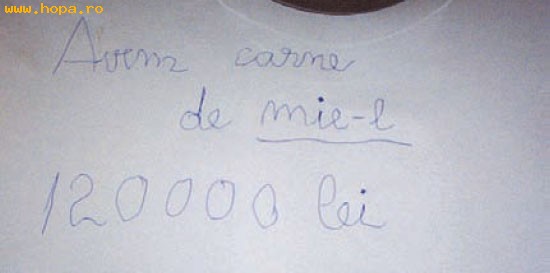 www.hopa.ro
Avem carne
de mie-l
120000 lei